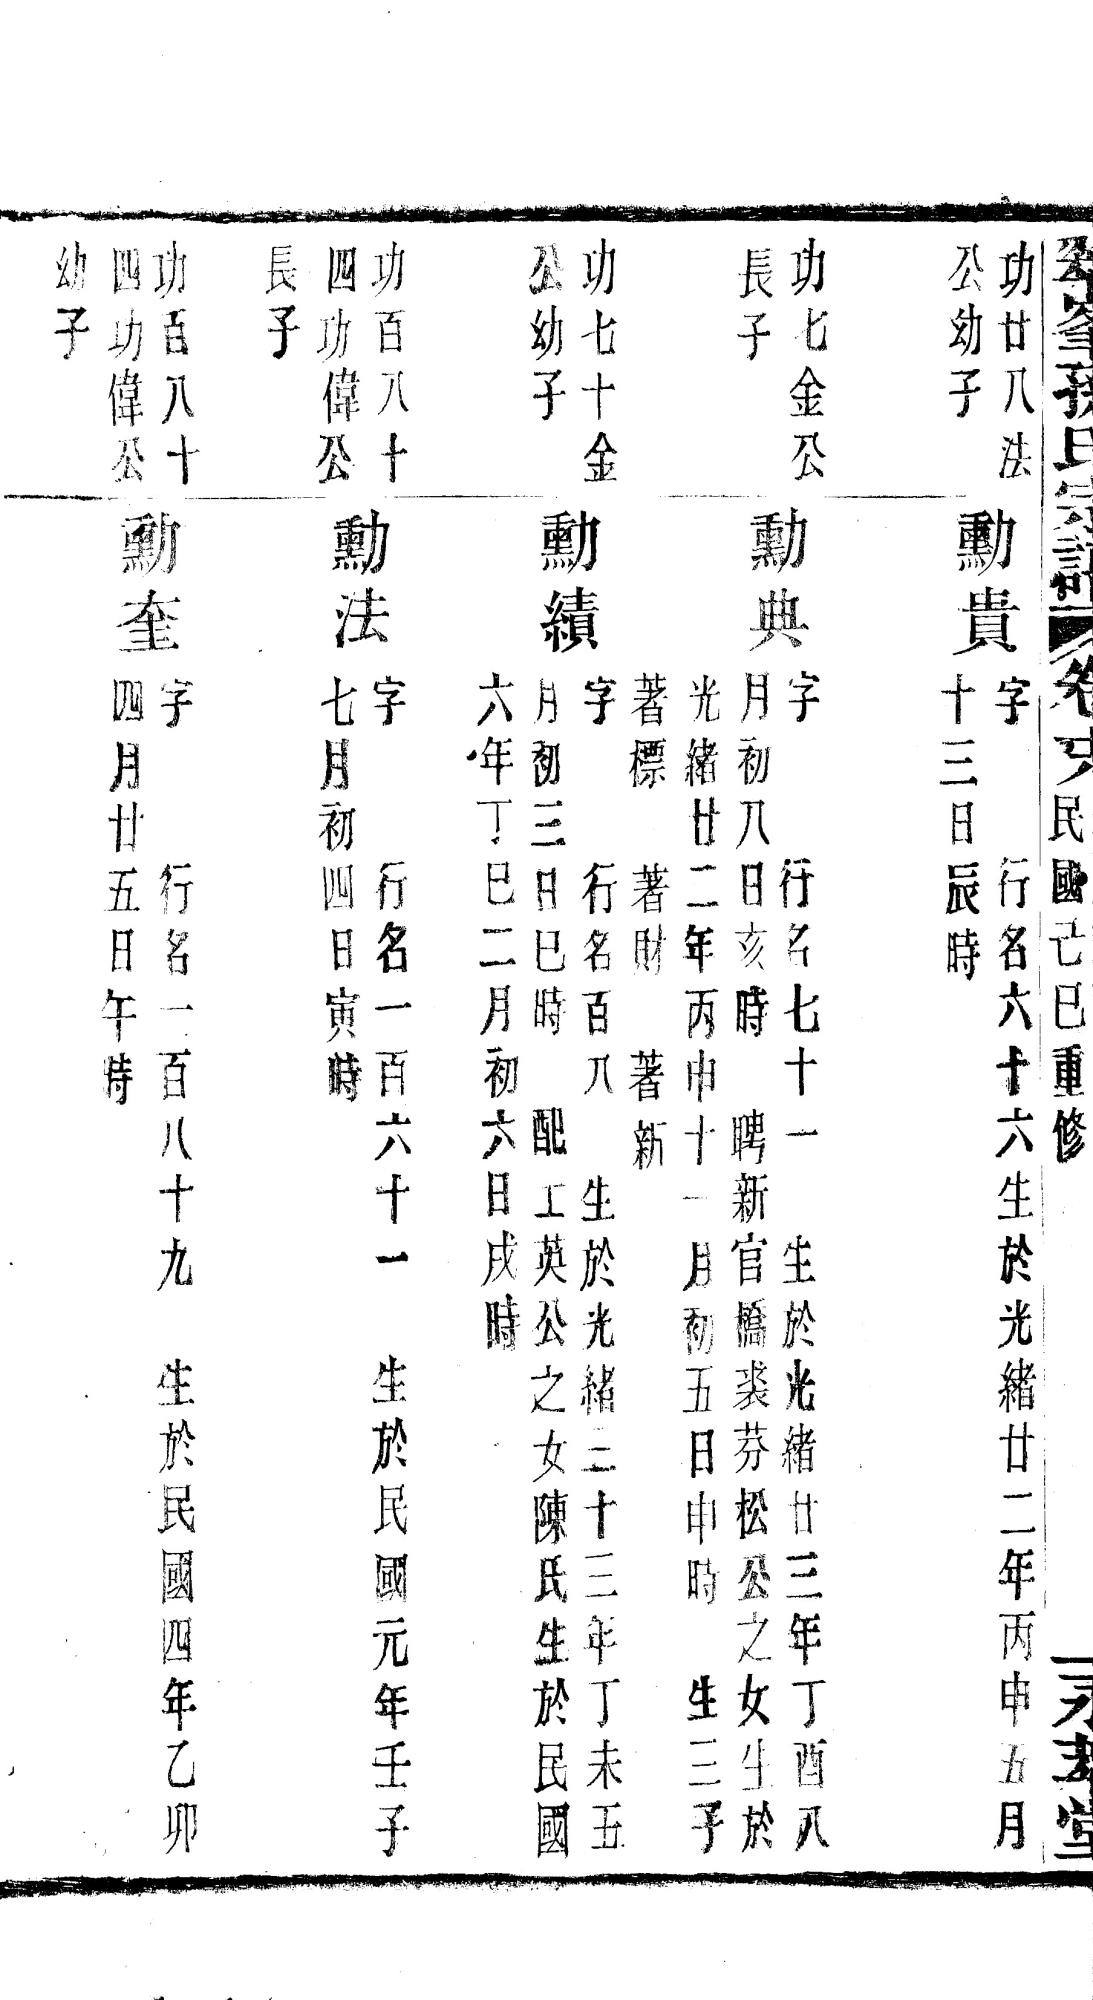 孫氏宗譜 卷 民國己巳重修 永 堂
功廿八法
公幼子
勳貴
字 行名六十六生於光緒廿二年丙申五月
十三日辰時
功七金公
長子
勳典
字 行名七十一 生於光緒廿三年丁酉八
月初八日亥時 聘新官橋裘芬松公之女生於
光緒廿二年丙申十一月初五日申時 生三子
著標 著財 著新
功七十金
公幼子
勳績
字 行名百八 生於光緒三十三年丁未五
月初三日巳時 配工英公之女陳氏生於民國
六年丁巳二月初六日戌時
功百八十
四功偉公
長子
勳法
字 行名一百六十一 生於民國元年壬子
七月初四日寅時
功百八十
四功偉公
幼子
勳奎
字 行名一百八十九 生於民國四年乙卯
四月廿五日午時